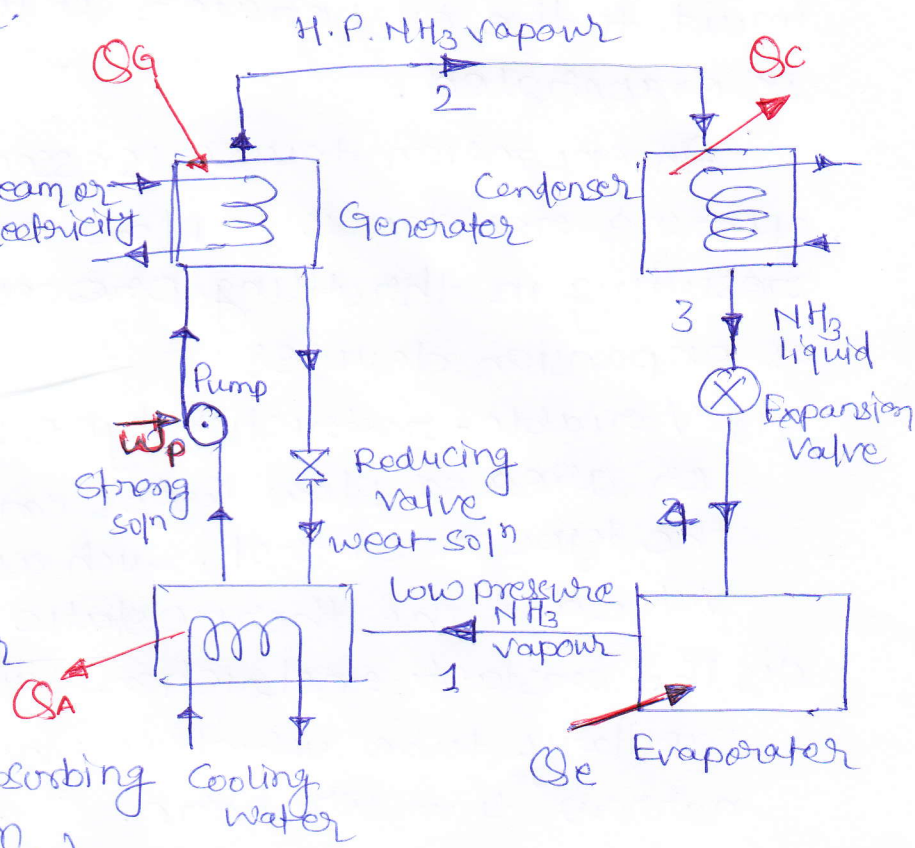 H.P. NH3 vapour
QG
QC
2
eam or
ectricity
Generator
Condenser
3
NH3
liquid
Pump
Expansion
Valve
WP
Strong
solⁿ
Reducing
Valve
weat solⁿ
4
low pressure
NH3
vapour
1
QA
Qe
Evaporater
sorbing
Cooling
water